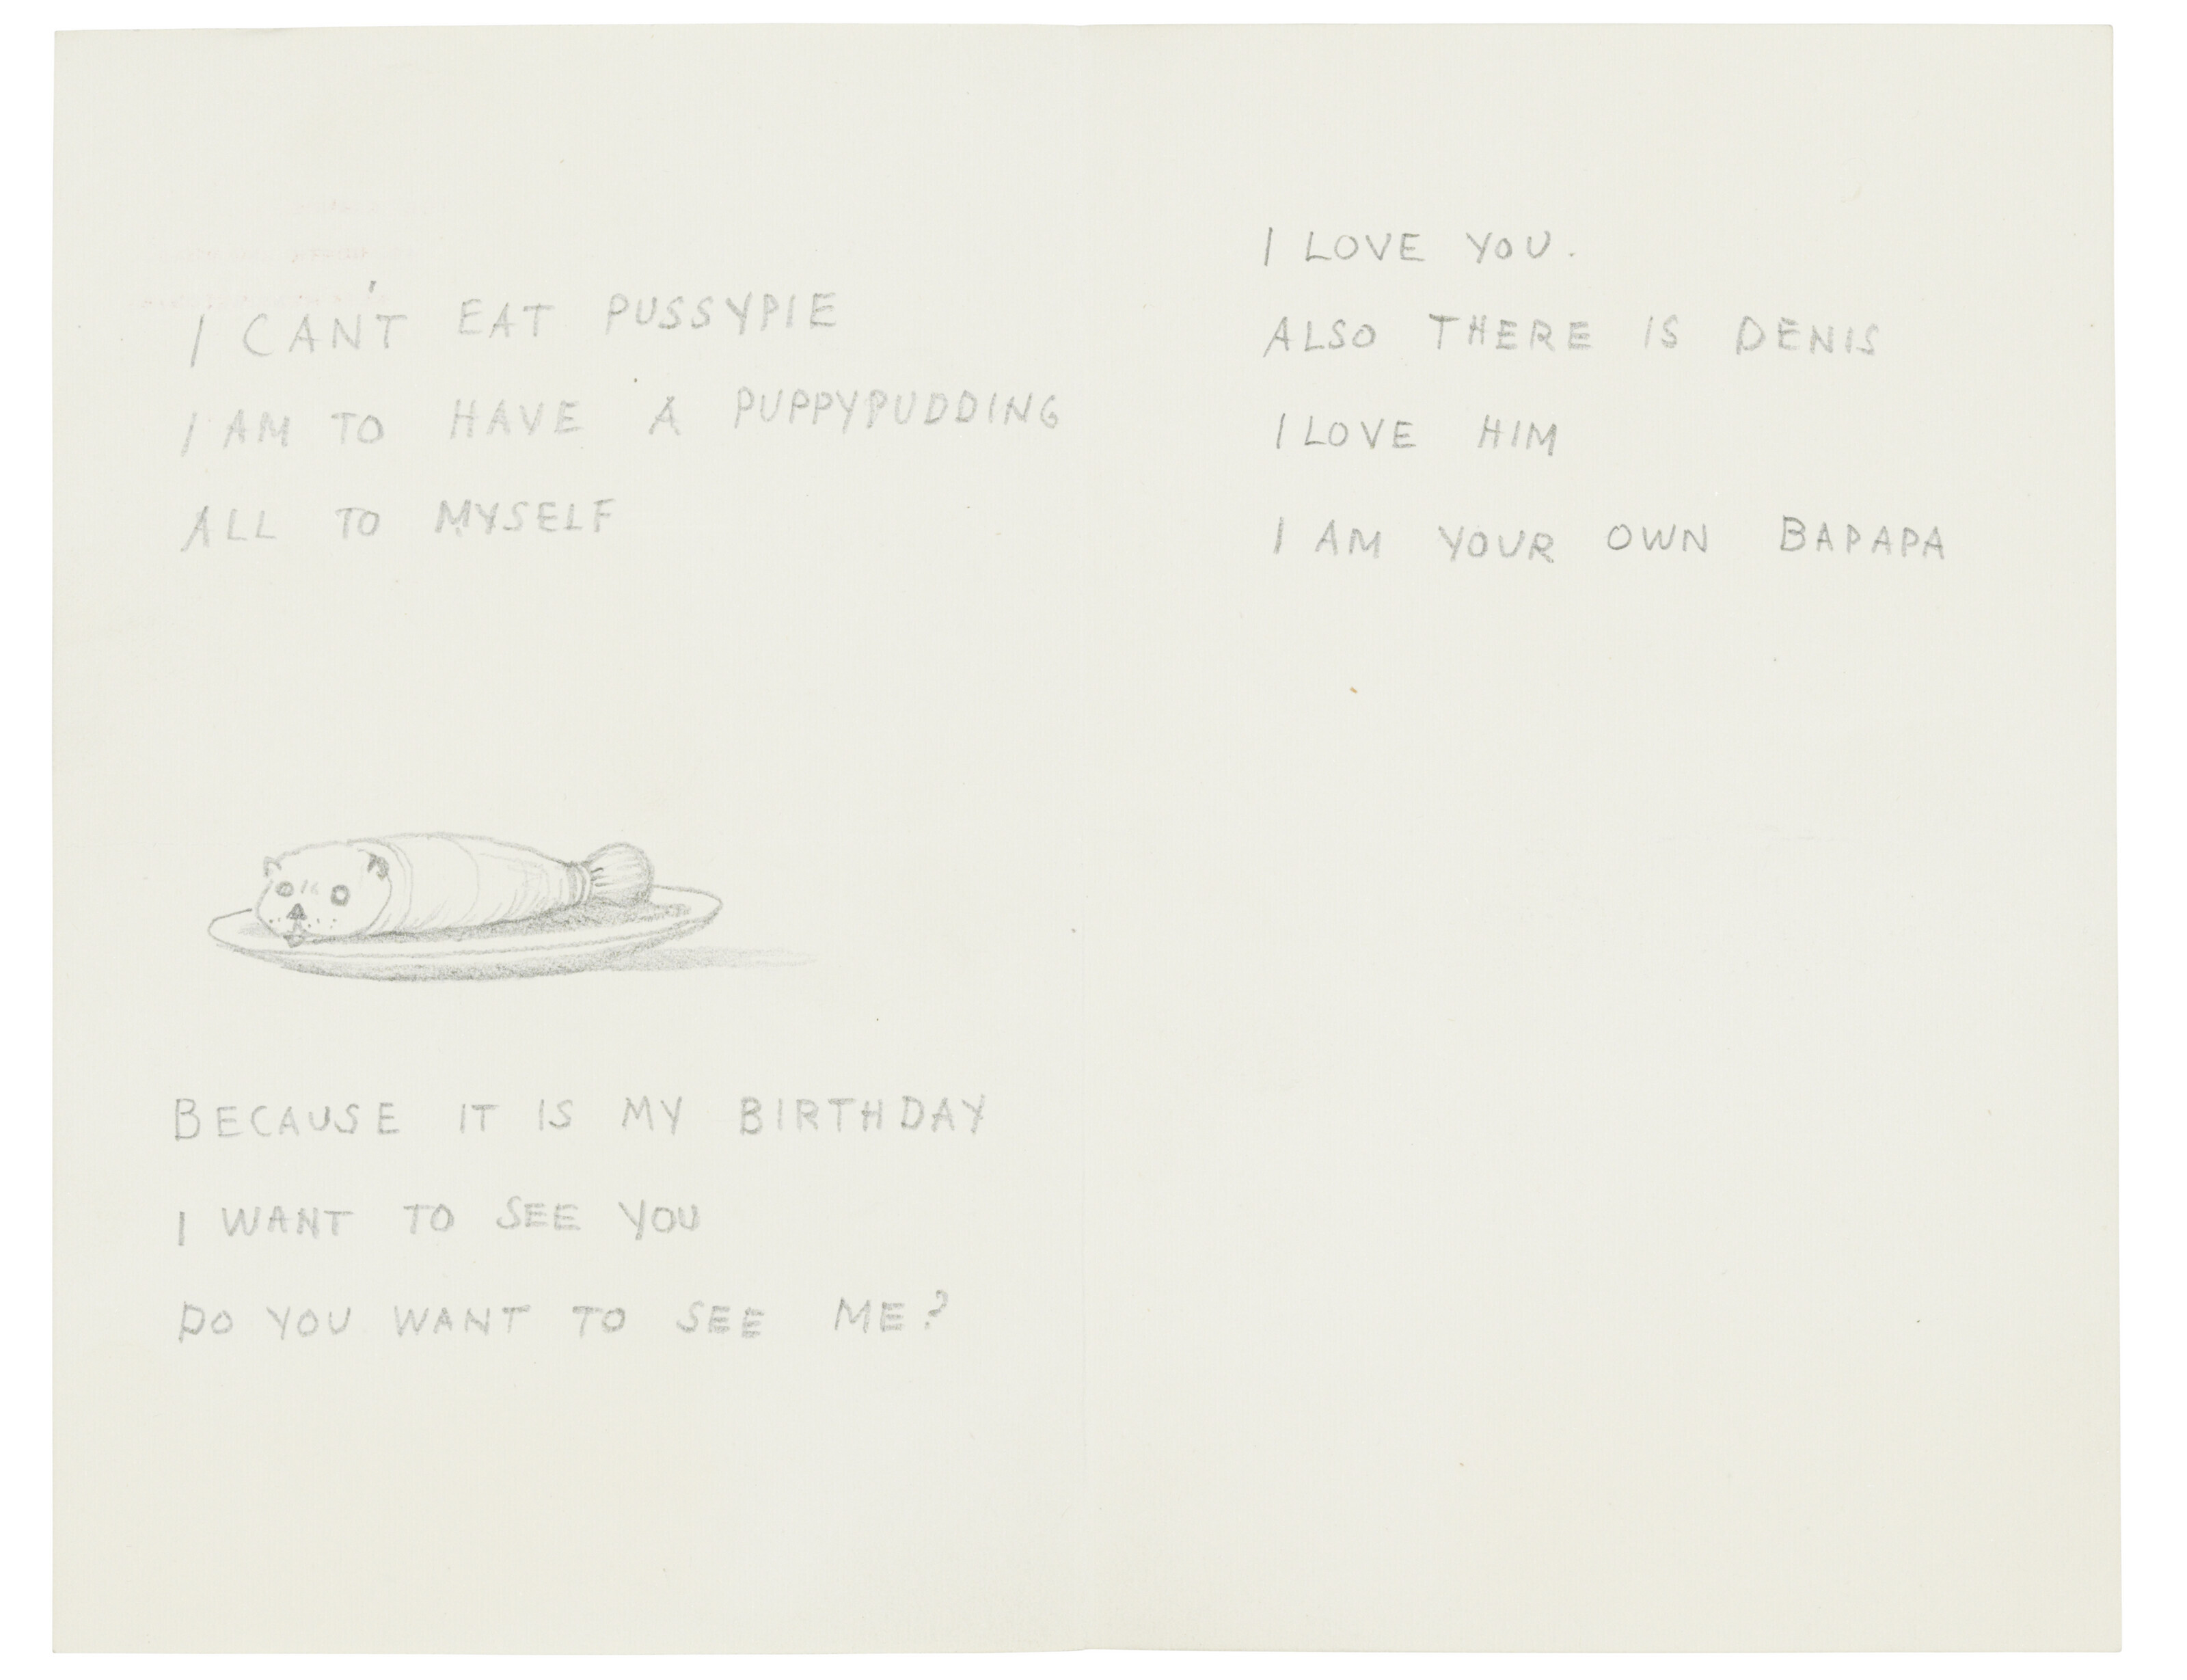 I CAN'T EAT PUSSYPIE
I AM TO HAVE A PUPPYPUDDING
ALL TO MYSELF
BECAUSE IT IS MY BIRTHDAY
I WANT TO SEE YOU
DO YOU WANT TO SEE ME?
I LOVE YOU.
ALSO THERE IS DENIS
I LOVE HIM
I AM YOUR OWN BAPAPA